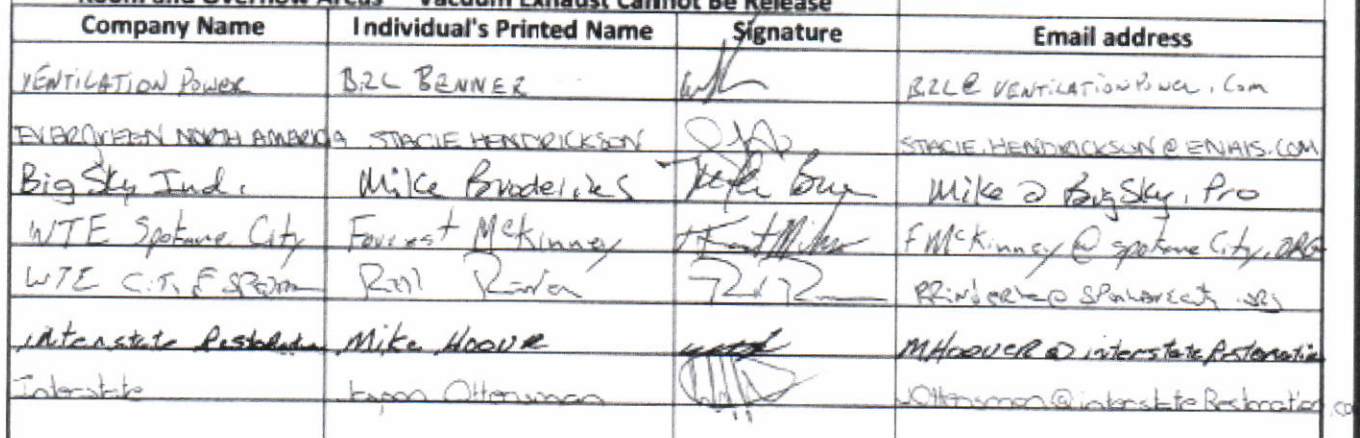 Room and Overflow Areas Vacuum Exhaust Cannot Be Release
Company Name Individual's Printed Name Signature Email address
VENTILATION POWER BZL BENNER BZL@VENTILATIONPOWER.COM
EVERGREEN NORTH AMERICA STACIE HENDRICKSON STACIE.HENDRICKSON@ENAIS.COM
Big Sky Ind. Mike Mike@BigSky.Pro
WTE Spokane City Forrest McKinney FMcKinney@spokaneCity.ORG
WTE
interstate Restoration Mike Hoover MHoover@interstateRestoration
Interstate Ottensman JOttensman@interstateRestoration.co